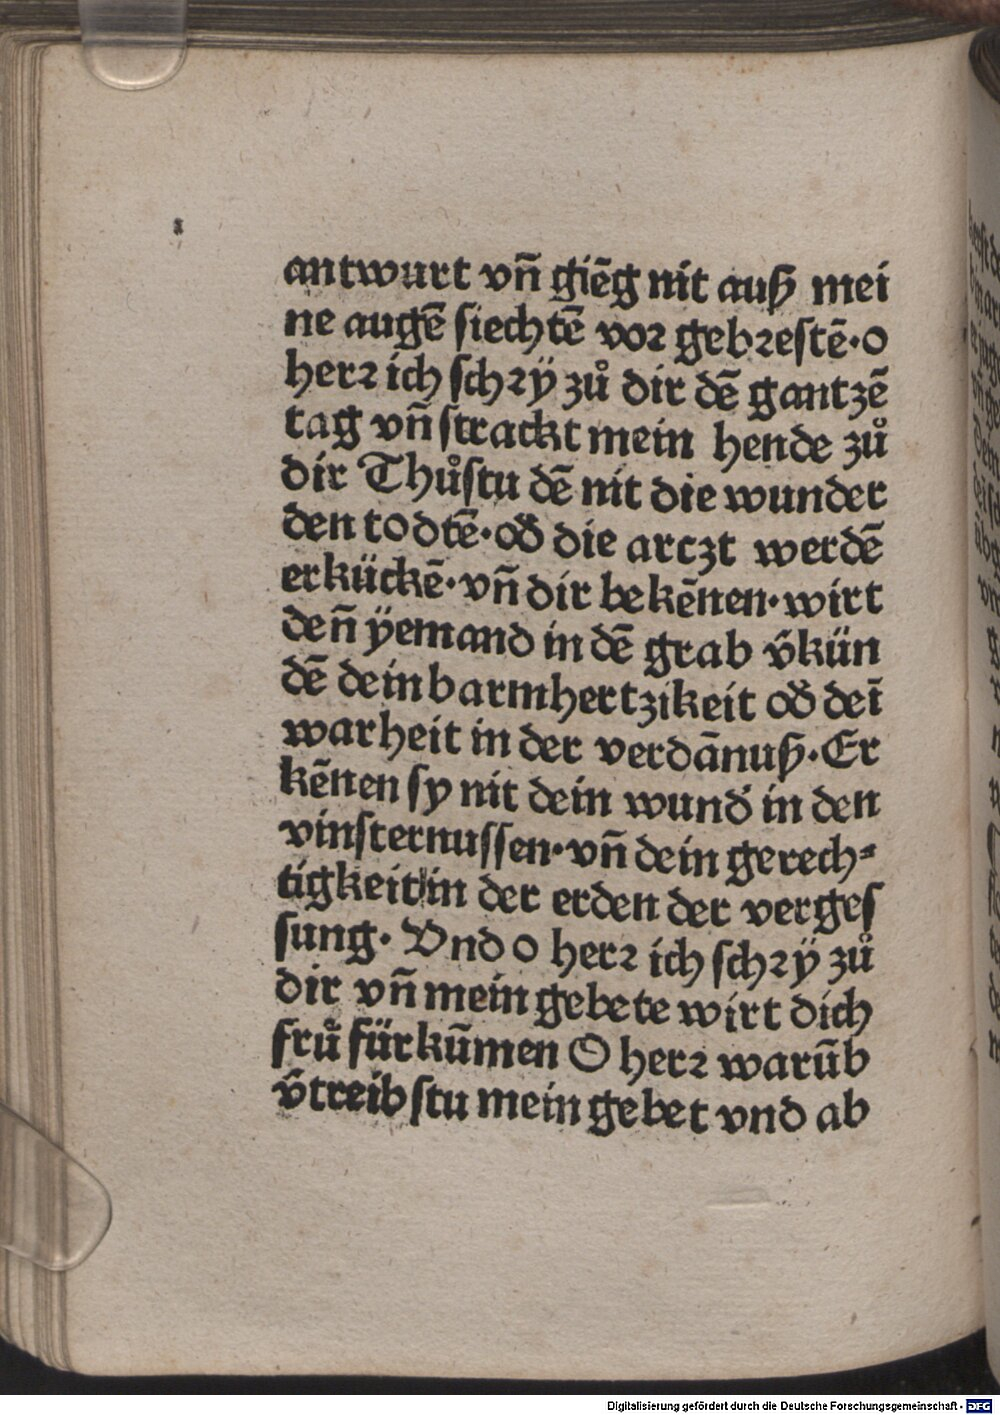 antwurt vñ giēg nit auß mei
ne augē siechtē vor gebrestē · o
herr ich schrÿ zů dir dē gantzē
tag vñ strackt mein hende zů
dir Thůstu dē nit die wunder
den todtē · od̄ die arczt werdē
erkückē · vñ dir bekēnen · wirt
deñ ÿemand in dē grab v̄kün
dē dein barmhertzikeit od̄ deī
warheit in der verdānuß · Er
kēnen sy nit dein wund̄ in den
vinsternussen · vñ dein gerech⸗
tigkeit in der erden der verges
sung · Vnd o herr ich schrÿ zů
dir vñ mein gebete wirt dich
frů fürkūmen O herr warūb
v̄treibstu mein gebet vnd ab
Digitalisierung gefördert durch die Deutsche Forschungsgemeinschaft - DFG